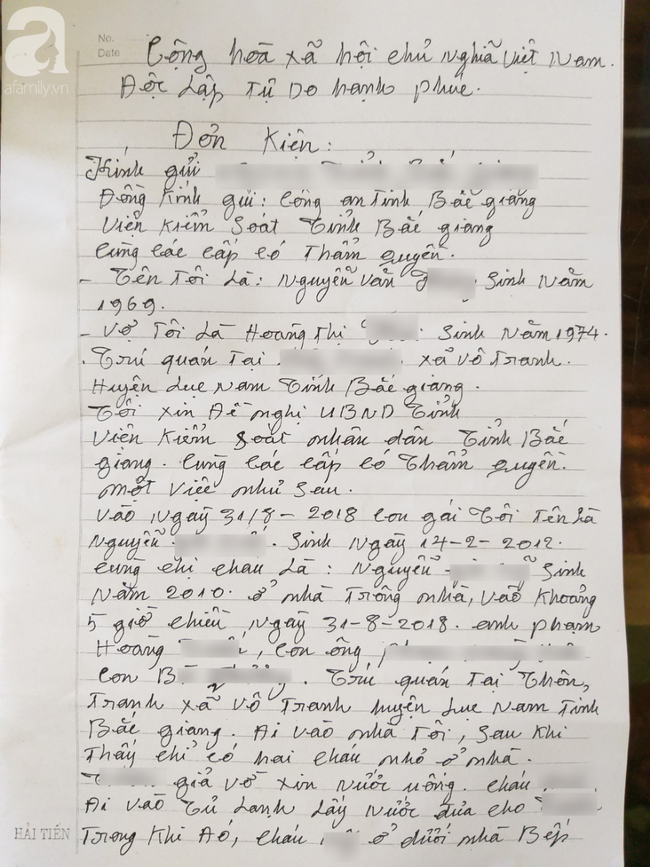 a
afamily.vn
No.
Date
Cộng hoà xã hội chủ nghĩa Việt Nam.
Độc Lập Tự Do hạnh phúc.
Đơn Kiện:
Kính gửi
Đồng Kính gửi: Công an Tỉnh Bắc giang
Viện Kiểm Soát Tỉnh Bắc giang
Cùng các cấp có Thẩm quyền.
- Tên Tôi Là: Nguyễn Văn Sinh Năm
1969.
- Vợ Tôi Là Hoàng Thị Sinh Năm 1974.
. Trú quán Tại xã Vô Tranh.
Huyện Lục Nam Tỉnh Bắc giang.
Tôi xin Đề nghị UBND Tỉnh
Viện Kiểm Soát nhân dân Tỉnh Bắc
giang. Cùng các cấp có Thẩm quyền.
một Việc như sau.
Vào Ngày 31/8-2018 Con gái Tôi Tên Là
Nguyễn . Sinh Ngày 14-2-2012.
Cùng chị cháu Là: Nguyễn Sinh
Năm 2010. ở nhà Trông nhà, Vào Khoảng
5 giờ chiều ngày 31-8-2018. anh phạm
Hoàng , Con ông
Con B . Trú quán Tại Thôn,
Tranh xã Vô Tranh huyện Lục Nam Tỉnh
Bắc giang. Đi vào nhà Tôi, Sau Khi
Thấy chỉ có hai cháu nhỏ ở nhà.
T giả vờ xin nước uống. cháu
Đi vào Tủ Lạnh Lấy Nước đưa cho
HẢI TIẾN
Trong Khi Đó, cháu ở dưới nhà Bếp